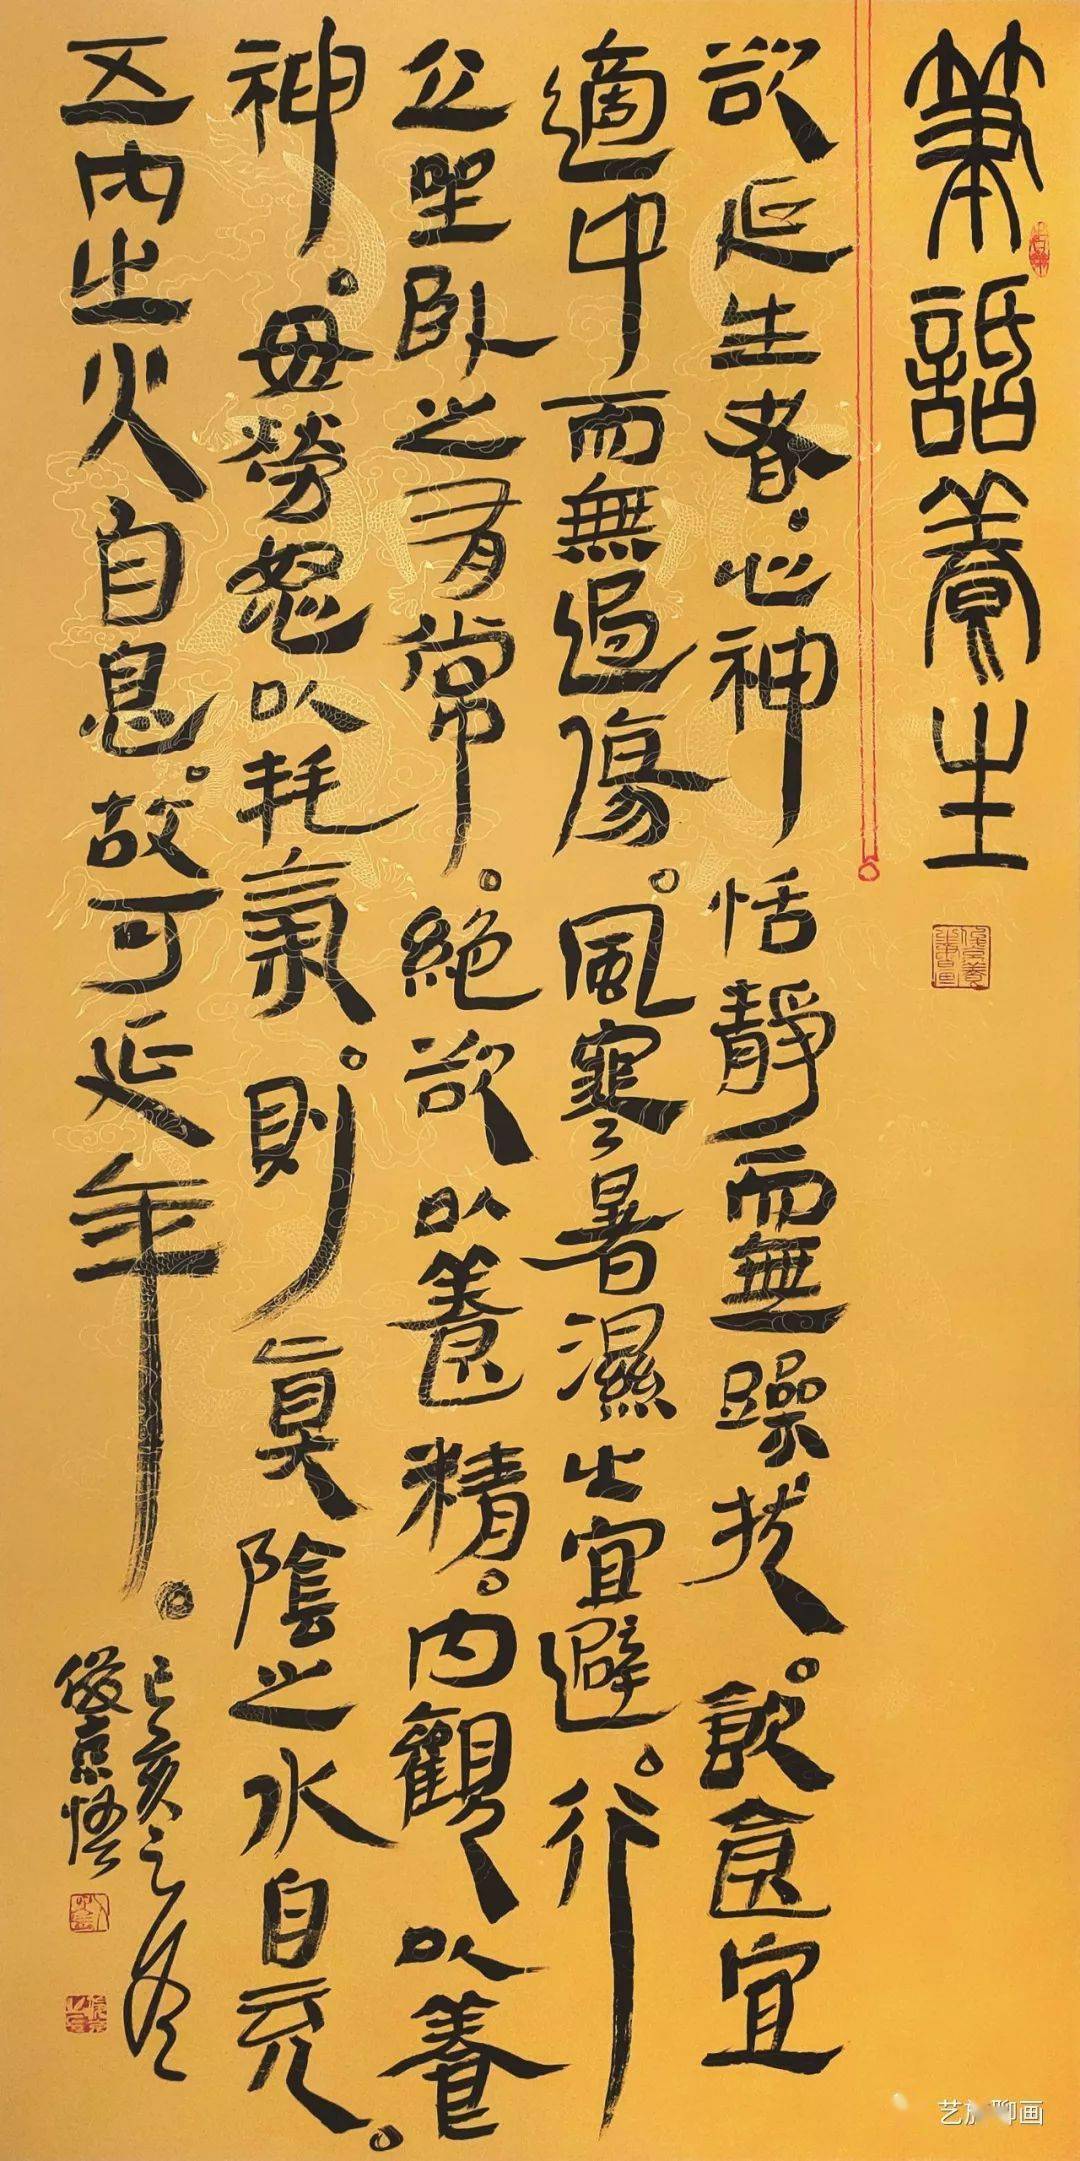 筆話養生
欲延生者。心神恬靜而無躁扰。飲食宜
適中而無過傷。風寒暑濕之宜避。行
立坐卧之有常。絕欲以養精。内觀以養
神。毋勞怒以耗氣。則真陰之水自充。
五内之火自息。故可延年。
己亥之冬
京悟
艺 聊画